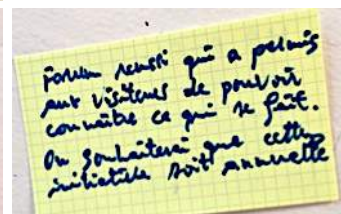 Forum reussi qui a permis
aux visiteurs de pouvoir
connaître ce qui se fait.
On souhaiterai que cette
initiative soit annuelle